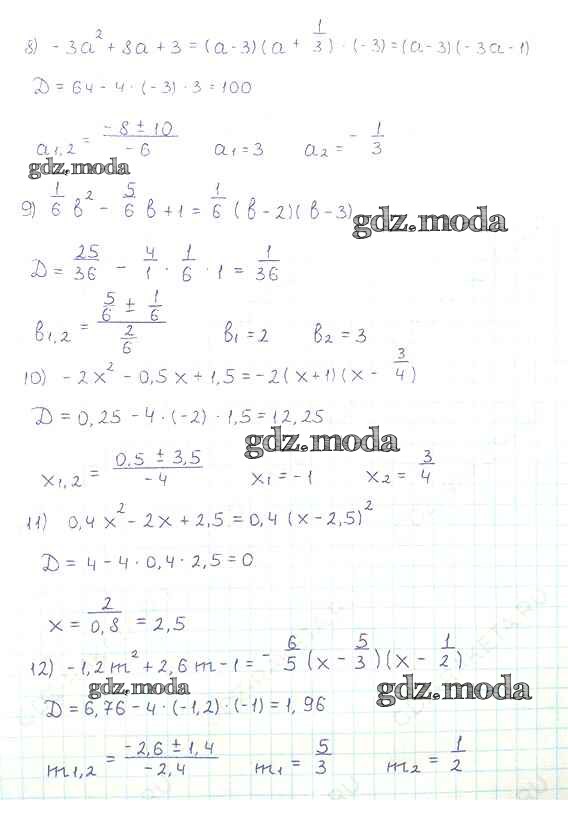 8) -3a² + 8a + 3 = (a-3)(a + 1/3) · (-3) = (a-3)(-3a-1)
D = 64 - 4 · (-3) · 3 = 100
a1,2 = (-8 ± 10)/(-6) a1 = 3 a2 = -1/3
gdz.moda
9) 1/6 в² - 5/6 в + 1 = 1/6 (в-2)(в-3)
gdz.moda
D = 25/36 - 4/1 · 1/6 · 1 = 1/36
в1,2 = (5/6 ± 1/6)/(2/6) в1 = 2 в2 = 3
10) -2x² - 0,5x + 1,5 = -2(x+1)(x - 3/4)
D = 0,25 - 4 · (-2) · 1,5 = 12,25
gdz.moda
x1,2 = (0,5 ± 3,5)/(-4) x1 = -1 x2 = 3/4
11) 0,4x² - 2x + 2,5 = 0,4 (x-2,5)²
D = 4 - 4 · 0,4 · 2,5 = 0
x = 2/0,8 = 2,5
12) -1,2m² + 2,6m - 1 = -6/5 (x - 5/3)(x - 1/2)
gdz.moda
gdz.moda
D = 6,76 - 4 · (-1,2) · (-1) = 1,96
m1,2 = (-2,6 ± 1,4)/(-2,4) m1 = 5/3 m2 = 1/2